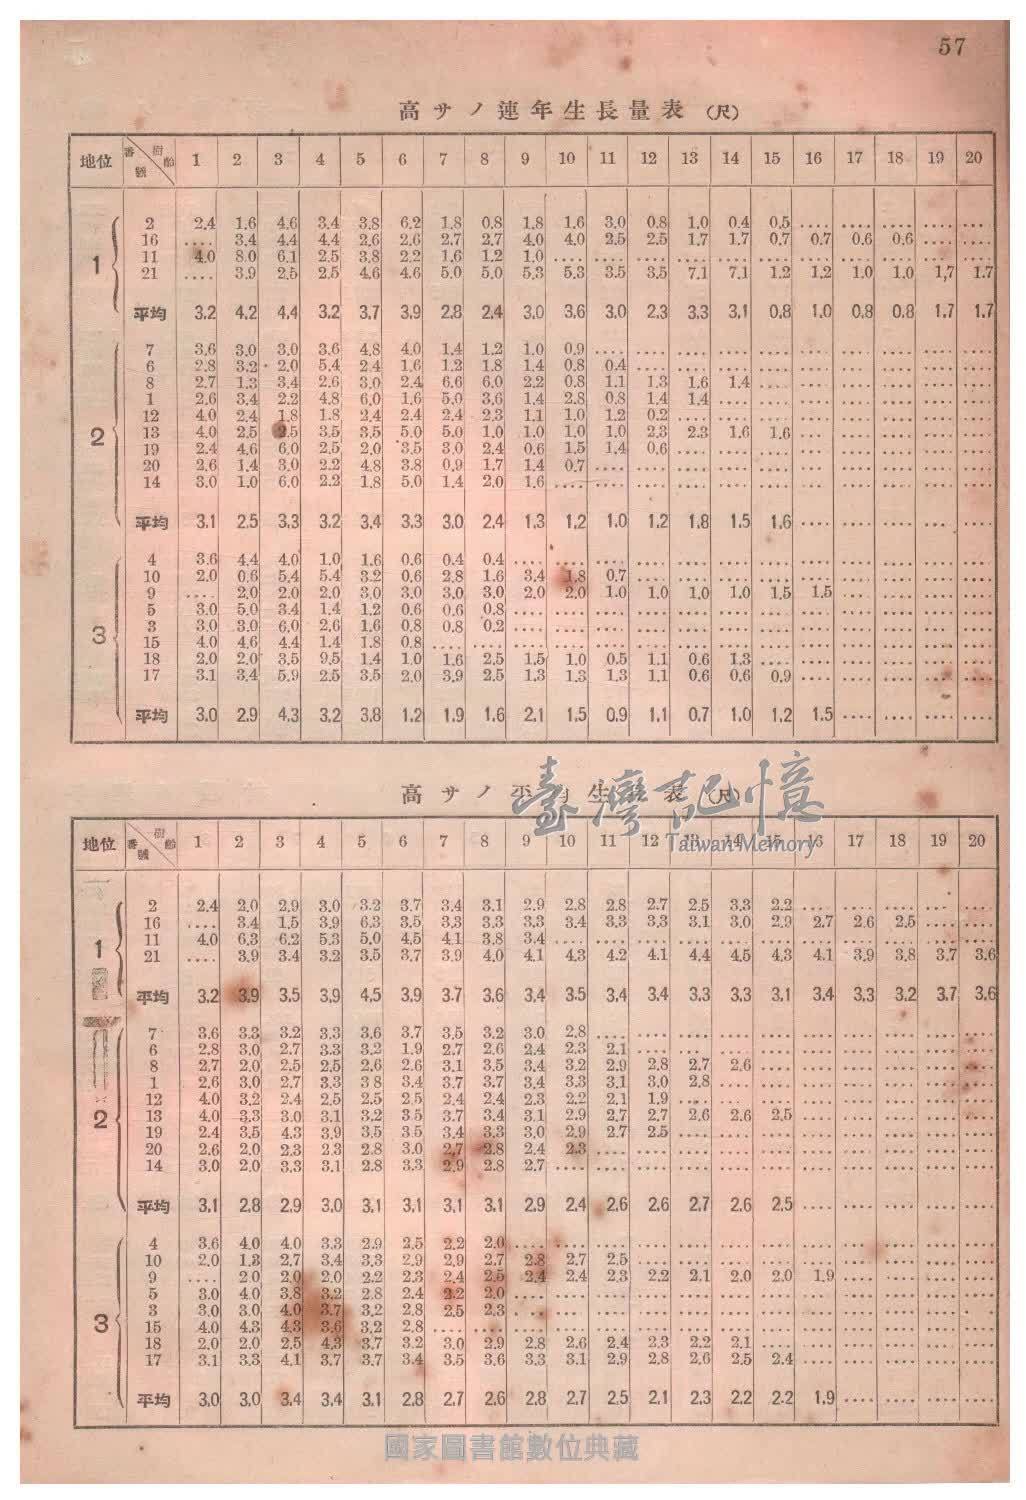 57
高サノ連年生長量表 (尺)
地位 番號 樹齡 1 2 3 4 5 6 7 8 9 10 11 12 13 14 15 16 17 18 19 20
1
2 2.4 1.6 4.6 3.4 3.8 6.2 1.8 0.8 1.8 1.6 3.0 0.8 1.0 0.4 0.5 .... .... .... .... ....
16 .... 3.4 4.4 4.4 2.6 2.6 2.7 2.7 4.0 4.0 2.5 2.5 1.7 1.7 0.7 0.7 0.6 0.6 .... ....
11 4.0 8.0 6.1 2.5 3.8 2.2 1.6 1.2 1.0 .... .... .... .... .... .... .... .... .... .... ....
21 .... 3.9 2.5 2.5 4.6 4.6 5.0 5.0 5.3 5.3 3.5 3.5 7.1 7.1 1.2 1.2 1.0 1.0 1.7 1.7
平均 3.2 4.2 4.4 3.2 3.7 3.9 2.8 2.4 3.0 3.6 3.0 2.3 3.3 3.1 0.8 1.0 0.8 0.8 1.7 1.7
2
7 3.6 3.0 3.0 3.6 4.8 4.0 1.4 1.2 1.0 0.9 .... .... .... .... .... .... .... .... .... ....
6 2.8 3.2 2.0 5.4 2.4 1.6 1.2 1.8 1.4 0.8 0.4 .... .... .... .... .... .... .... .... ....
8 2.7 1.3 3.4 2.6 3.0 2.4 6.6 6.0 2.2 0.8 1.1 1.3 1.6 1.4 .... .... .... .... .... ....
1 2.6 3.4 2.2 4.8 6.0 1.6 5.0 3.6 1.4 2.8 0.8 1.4 1.4 .... .... .... .... .... .... ....
12 4.0 2.4 1.8 1.8 2.4 2.4 2.4 2.3 1.1 1.0 1.2 0.2 .... .... .... .... .... .... .... ....
13 4.0 2.5 2.5 3.5 3.5 5.0 5.0 1.0 1.0 1.0 1.0 2.3 2.3 1.6 1.6 .... .... .... .... ....
19 2.4 4.6 6.0 2.5 2.0 3.5 3.0 2.4 0.6 1.5 1.4 0.6 .... .... .... .... .... .... .... ....
20 2.6 1.4 3.0 2.2 4.8 3.8 0.9 1.7 1.4 0.7 .... .... .... .... .... .... .... .... .... ....
14 3.0 1.0 6.0 2.2 1.8 5.0 1.4 2.0 1.6 .... .... .... .... .... .... .... .... .... .... ....
平均 3.1 2.5 3.3 3.2 3.4 3.3 3.0 2.4 1.3 1.2 1.0 1.2 1.8 1.5 1.6 .... .... .... .... ....
3
4 3.6 4.4 4.0 1.0 1.6 0.6 0.4 0.4 .... .... .... .... .... .... .... .... .... .... .... ....
10 2.0 0.6 5.4 5.4 3.2 0.6 2.8 1.6 3.4 1.8 0.7 .... .... .... .... .... .... .... .... ....
9 .... 2.0 2.0 2.0 3.0 3.0 3.0 3.0 2.0 2.0 1.0 1.0 1.0 1.0 1.5 1.5 .... .... .... ....
5 3.0 5.0 3.4 1.4 1.2 0.6 0.6 0.8 .... .... .... .... .... .... .... .... .... .... .... ....
3 3.0 3.0 6.0 2.6 1.6 0.8 0.8 0.2 .... .... .... .... .... .... .... .... .... .... .... ....
15 4.0 4.6 4.4 1.4 1.8 0.8 .... .... .... .... .... .... .... .... .... .... .... .... .... ....
18 2.0 2.0 3.5 9.5 1.4 1.0 1.6 2.5 1.5 1.0 0.5 1.1 0.6 1.3 .... .... .... .... .... ....
17 3.1 3.4 5.9 2.5 3.5 2.0 3.9 2.5 1.3 1.3 1.3 1.1 0.6 0.6 0.9 .... .... .... .... ....
平均 3.0 2.9 4.3 3.2 3.8 1.2 1.9 1.6 2.1 1.5 0.9 1.1 0.7 1.0 1.2 1.5 .... .... .... ....
臺灣記憶
高サノ平均生長表 (尺)
Taiwan Memory
地位 番號 樹齡 1 2 3 4 5 6 7 8 9 10 11 12 13 14 15 16 17 18 19 20
1
2 2.4 2.0 2.9 3.0 3.2 3.7 3.4 3.1 2.9 2.8 2.8 2.7 2.5 3.3 2.2 .... .... .... .... ....
16 .... 3.4 1.5 3.9 6.3 3.5 3.3 3.3 3.3 3.4 3.3 3.3 3.1 3.0 2.9 2.7 2.6 2.5 .... ....
11 4.0 6.3 6.2 5.3 5.0 4.5 4.1 3.8 3.4 .... .... .... .... .... .... .... .... .... .... ....
21 .... 3.9 3.4 3.2 3.5 3.7 3.9 4.0 4.1 4.3 4.2 4.1 4.4 4.5 4.3 4.1 3.9 3.8 3.7 3.6
平均 3.2 3.9 3.5 3.9 4.5 3.9 3.7 3.6 3.4 3.5 3.4 3.4 3.3 3.3 3.1 3.4 3.3 3.2 3.7 3.6
2
7 3.6 3.3 3.2 3.3 3.6 3.7 3.5 3.2 3.0 2.8 .... .... .... .... .... .... .... .... .... ....
6 2.8 3.0 2.7 3.3 3.2 1.9 2.7 2.6 2.4 2.3 2.1 .... .... .... .... .... .... .... .... ....
8 2.7 2.0 2.5 2.5 2.6 2.6 3.1 3.5 3.4 3.2 2.9 2.8 2.7 2.6 .... .... .... .... .... ....
1 2.6 3.0 2.7 3.3 3 8 3.4 3.7 3.7 3.4 3.3 3.1 3.0 2.8 .... .... .... .... .... .... ....
12 4.0 3.2 2.4 2.5 2.5 2.5 2.4 2.4 2.3 2.2 2.1 1.9 .... .... .... .... .... .... .... ....
13 4.0 3.3 3.0 3.1 3.2 3.5 3.7 3.4 3.1 2.9 2.7 2.7 2.6 2.6 2.5 .... .... .... .... ....
19 2.4 3.5 4.3 3.9 3.5 3.5 3.4 3.3 3.0 2.9 2.7 2.5 .... .... .... .... .... .... .... ....
20 2.6 2.0 2.3 2.3 2.8 3.0 2.7 2.8 2.4 2.3 .... .... .... .... .... .... .... .... .... ....
14 3.0 2.0 3.3 3.1 2.8 3.3 2.9 2.8 2.7 .... .... .... .... .... .... .... .... .... .... ....
平均 3.1 2.8 2.9 3.0 3.1 3.1 3.1 3.1 2.9 2.4 2.6 2.6 2.7 2.6 2.5 .... .... .... .... ....
3
4 3.6 4.0 4.0 3.3 2.9 2.5 2.2 2.0 .... .... .... .... .... .... .... .... .... .... .... ....
10 2.0 1.3 2.7 3.4 3.3 2.9 2.9 2.7 2.8 2.7 2.5 .... .... .... .... .... .... .... .... ....
9 .... 2.0 2.0 2.0 2.2 2.3 2.4 2.5 2.4 2.4 2.3 2.2 2.1 2.0 2.0 1.9 .... .... .... ....
5 3.0 4.0 3.8 3.2 2.8 2.4 2.2 2.0 .... .... .... .... .... .... .... .... .... .... .... ....
3 3.0 3.0 4.0 3.7 3.2 2.8 2.5 2.3 .... .... .... .... .... .... .... .... .... .... .... ....
15 4.0 4.3 4.3 3.6 3.2 2.8 .... .... .... .... .... .... .... .... .... .... .... .... .... ....
18 2.0 2.0 2.5 4.3 3.7 3.2 3.0 2.9 2.8 2.6 2.4 2.3 2.2 2.1 .... .... .... .... .... ....
17 3.1 3.3 4.1 3.7 3.7 3.4 3.5 3.6 3.3 3.1 2.9 2.8 2.6 2.5 2.4 .... .... .... .... ....
平均 3.0 3.0 3.4 3.4 3.1 2.8 2.7 2.6 2.8 2.7 2.5 2.1 2.3 2.2 2.2 1.9 .... .... .... ....
國家圖書館數位典藏